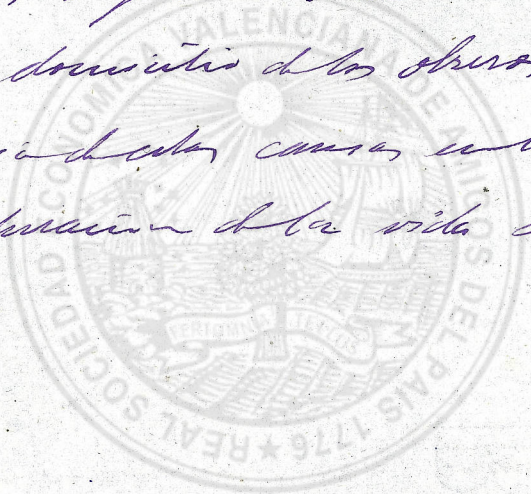 domicilio de los obreros
de estas causas en l
duracion de la vida d
REAL SOCIEDAD ECONOMICA VALENCIANA DE AMIGOS DEL PAIS 1776